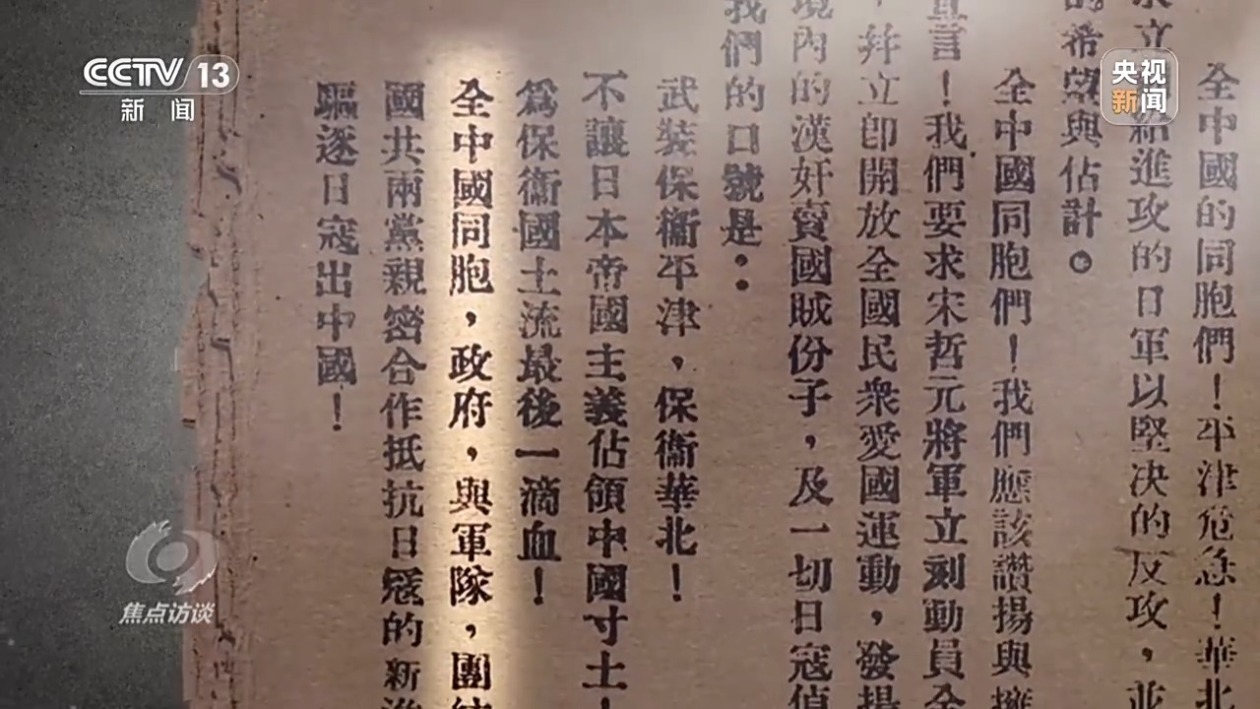 CCTV 13
新闻
央视
新闻
全中國的同胞們！平津危急！華北
給進攻的日軍以堅决的反攻，並
的希望與佔計。
全中國同胞們！我們應該讚揚與擁
言！我們要求宋哲元將軍立刻動員全
，并立卽開放全國民衆愛國運動，發揚
境內的漢奸賣國賊份子，及一切日寇偵
我們的口號是：
武裝保衞平津，保衞華北！
不讓日本帝國主義佔領中國寸土！
爲保衞國土流最後一滴血！
全中國同胞，政府，與軍隊，團結
國共兩黨親密合作抵抗日寇的新進
驅逐日寇出中國！
焦点访谈